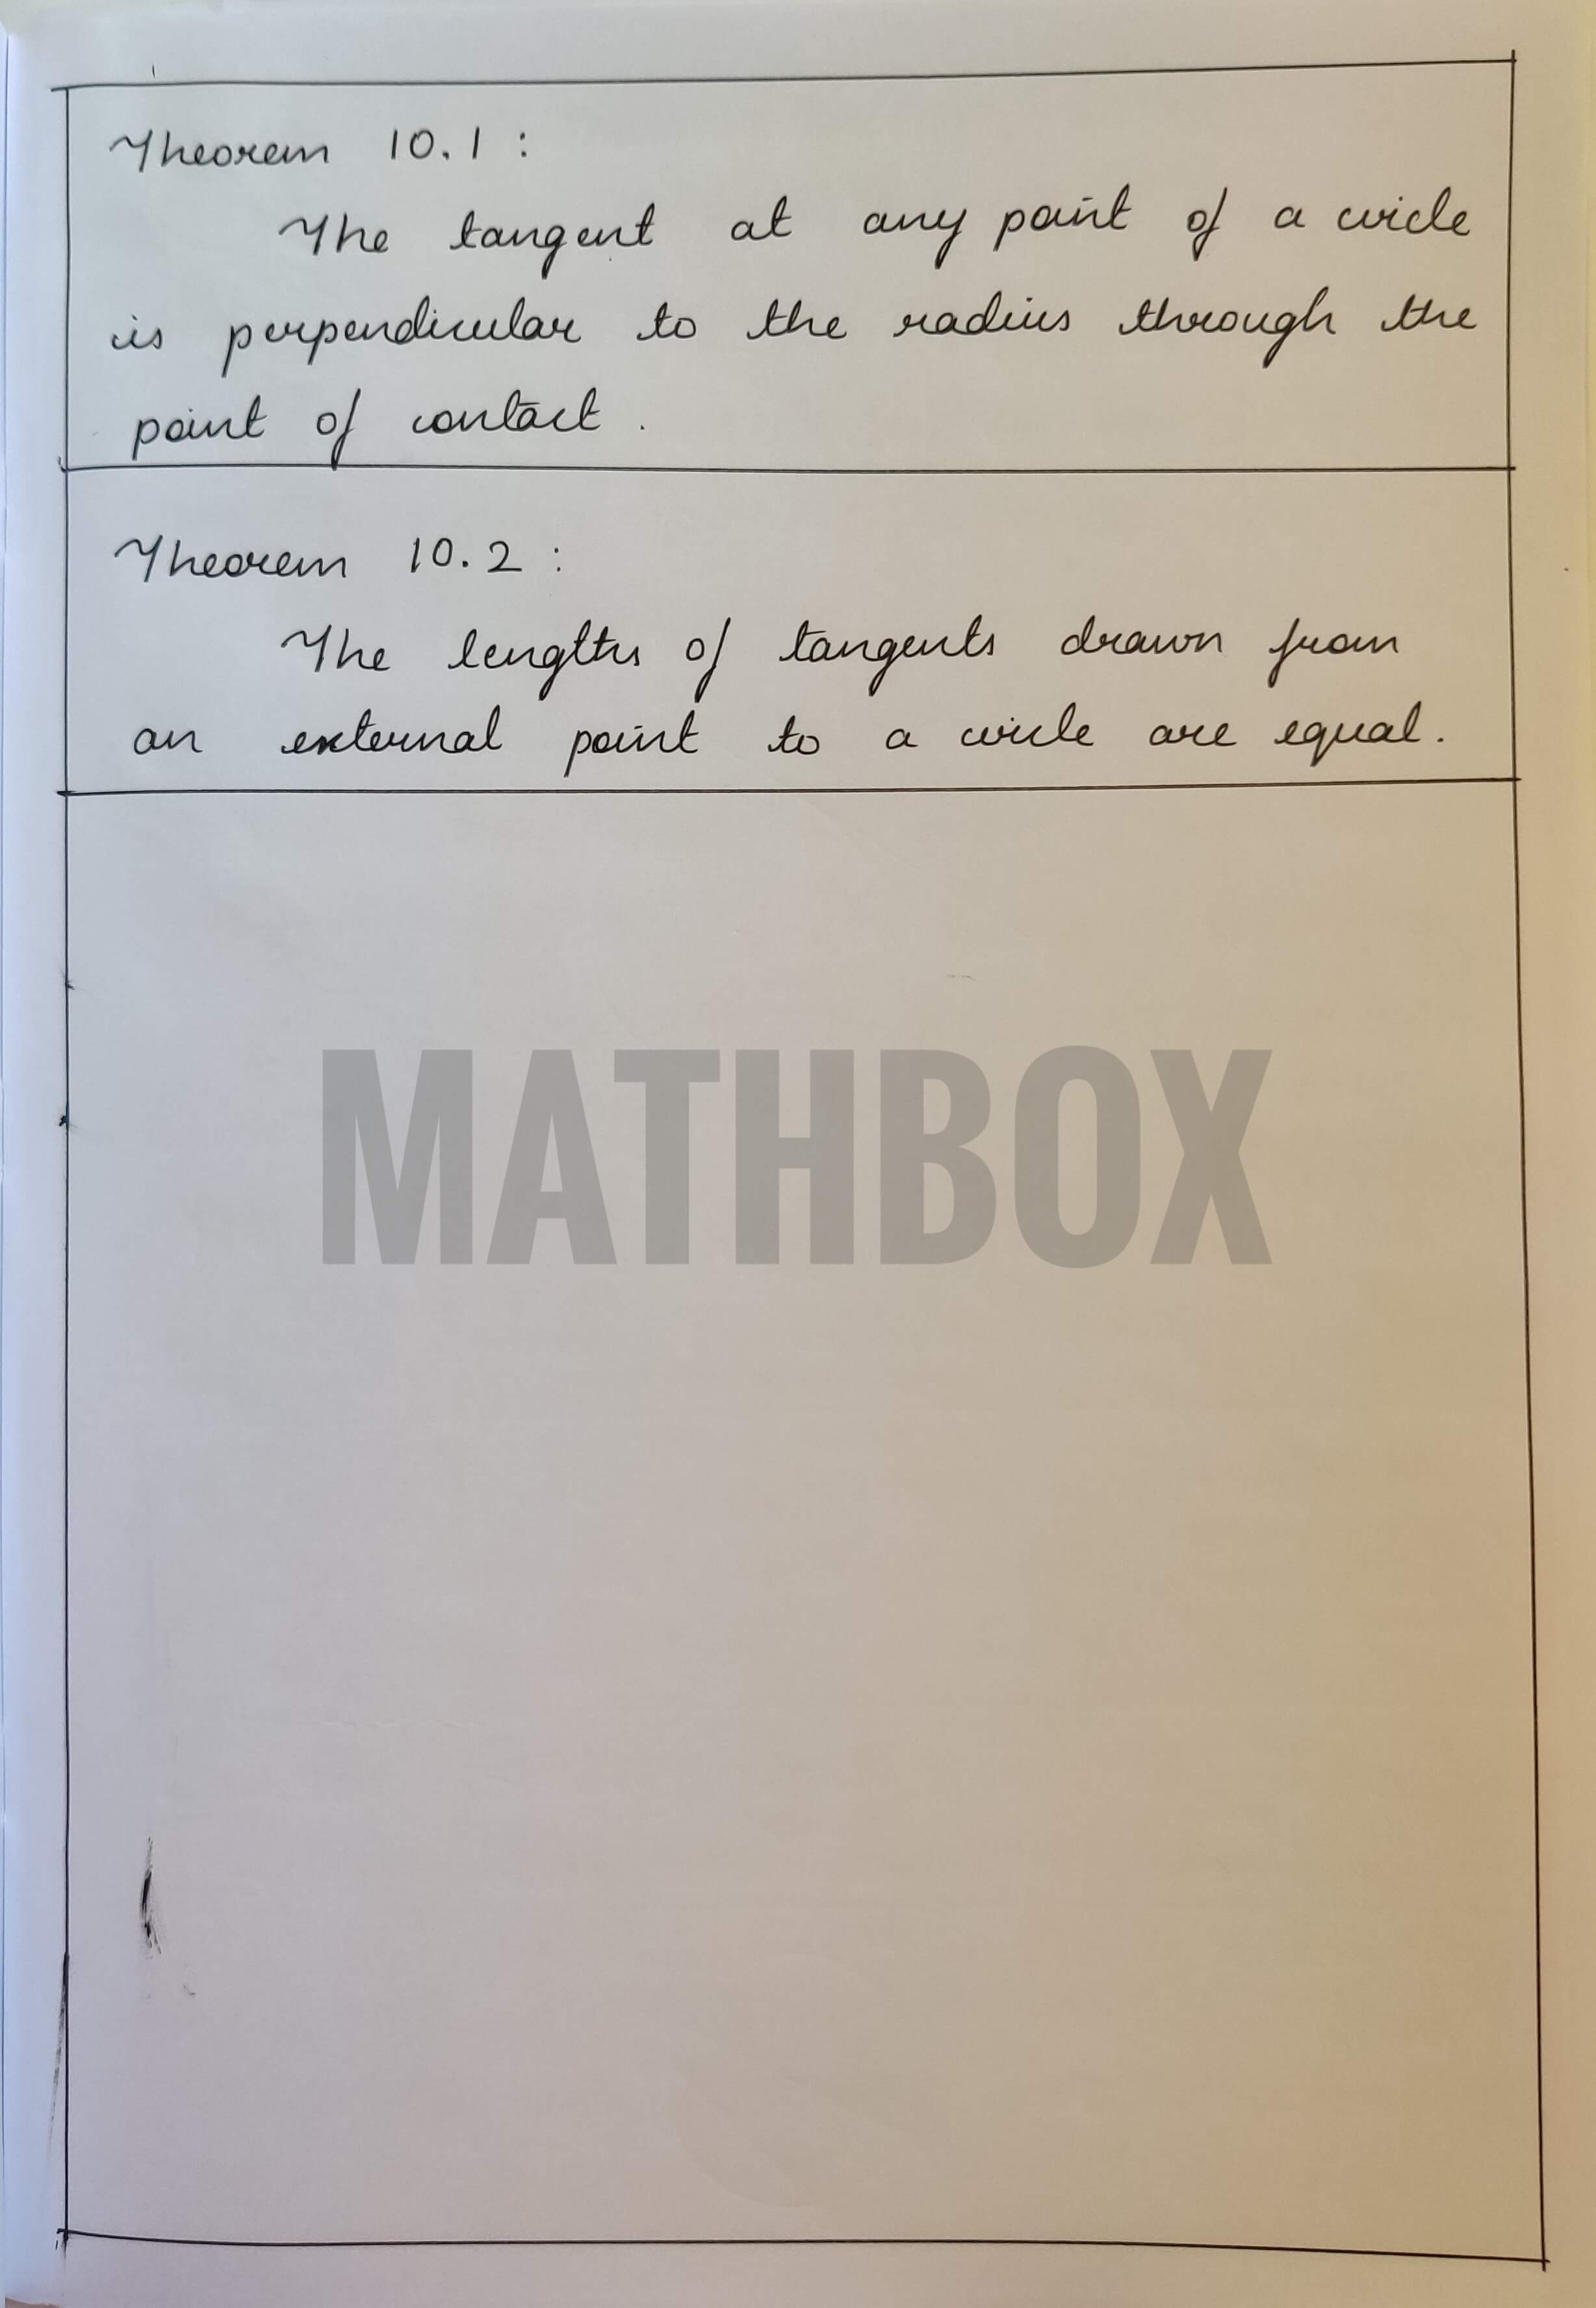 Theorem 10.1 :
The tangent at any point of a circle
is perpendicular to the radius through the
point of contact .
Theorem 10.2 :
The lengths of tangents drawn from
an external point to a circle are equal.
MATHBOX